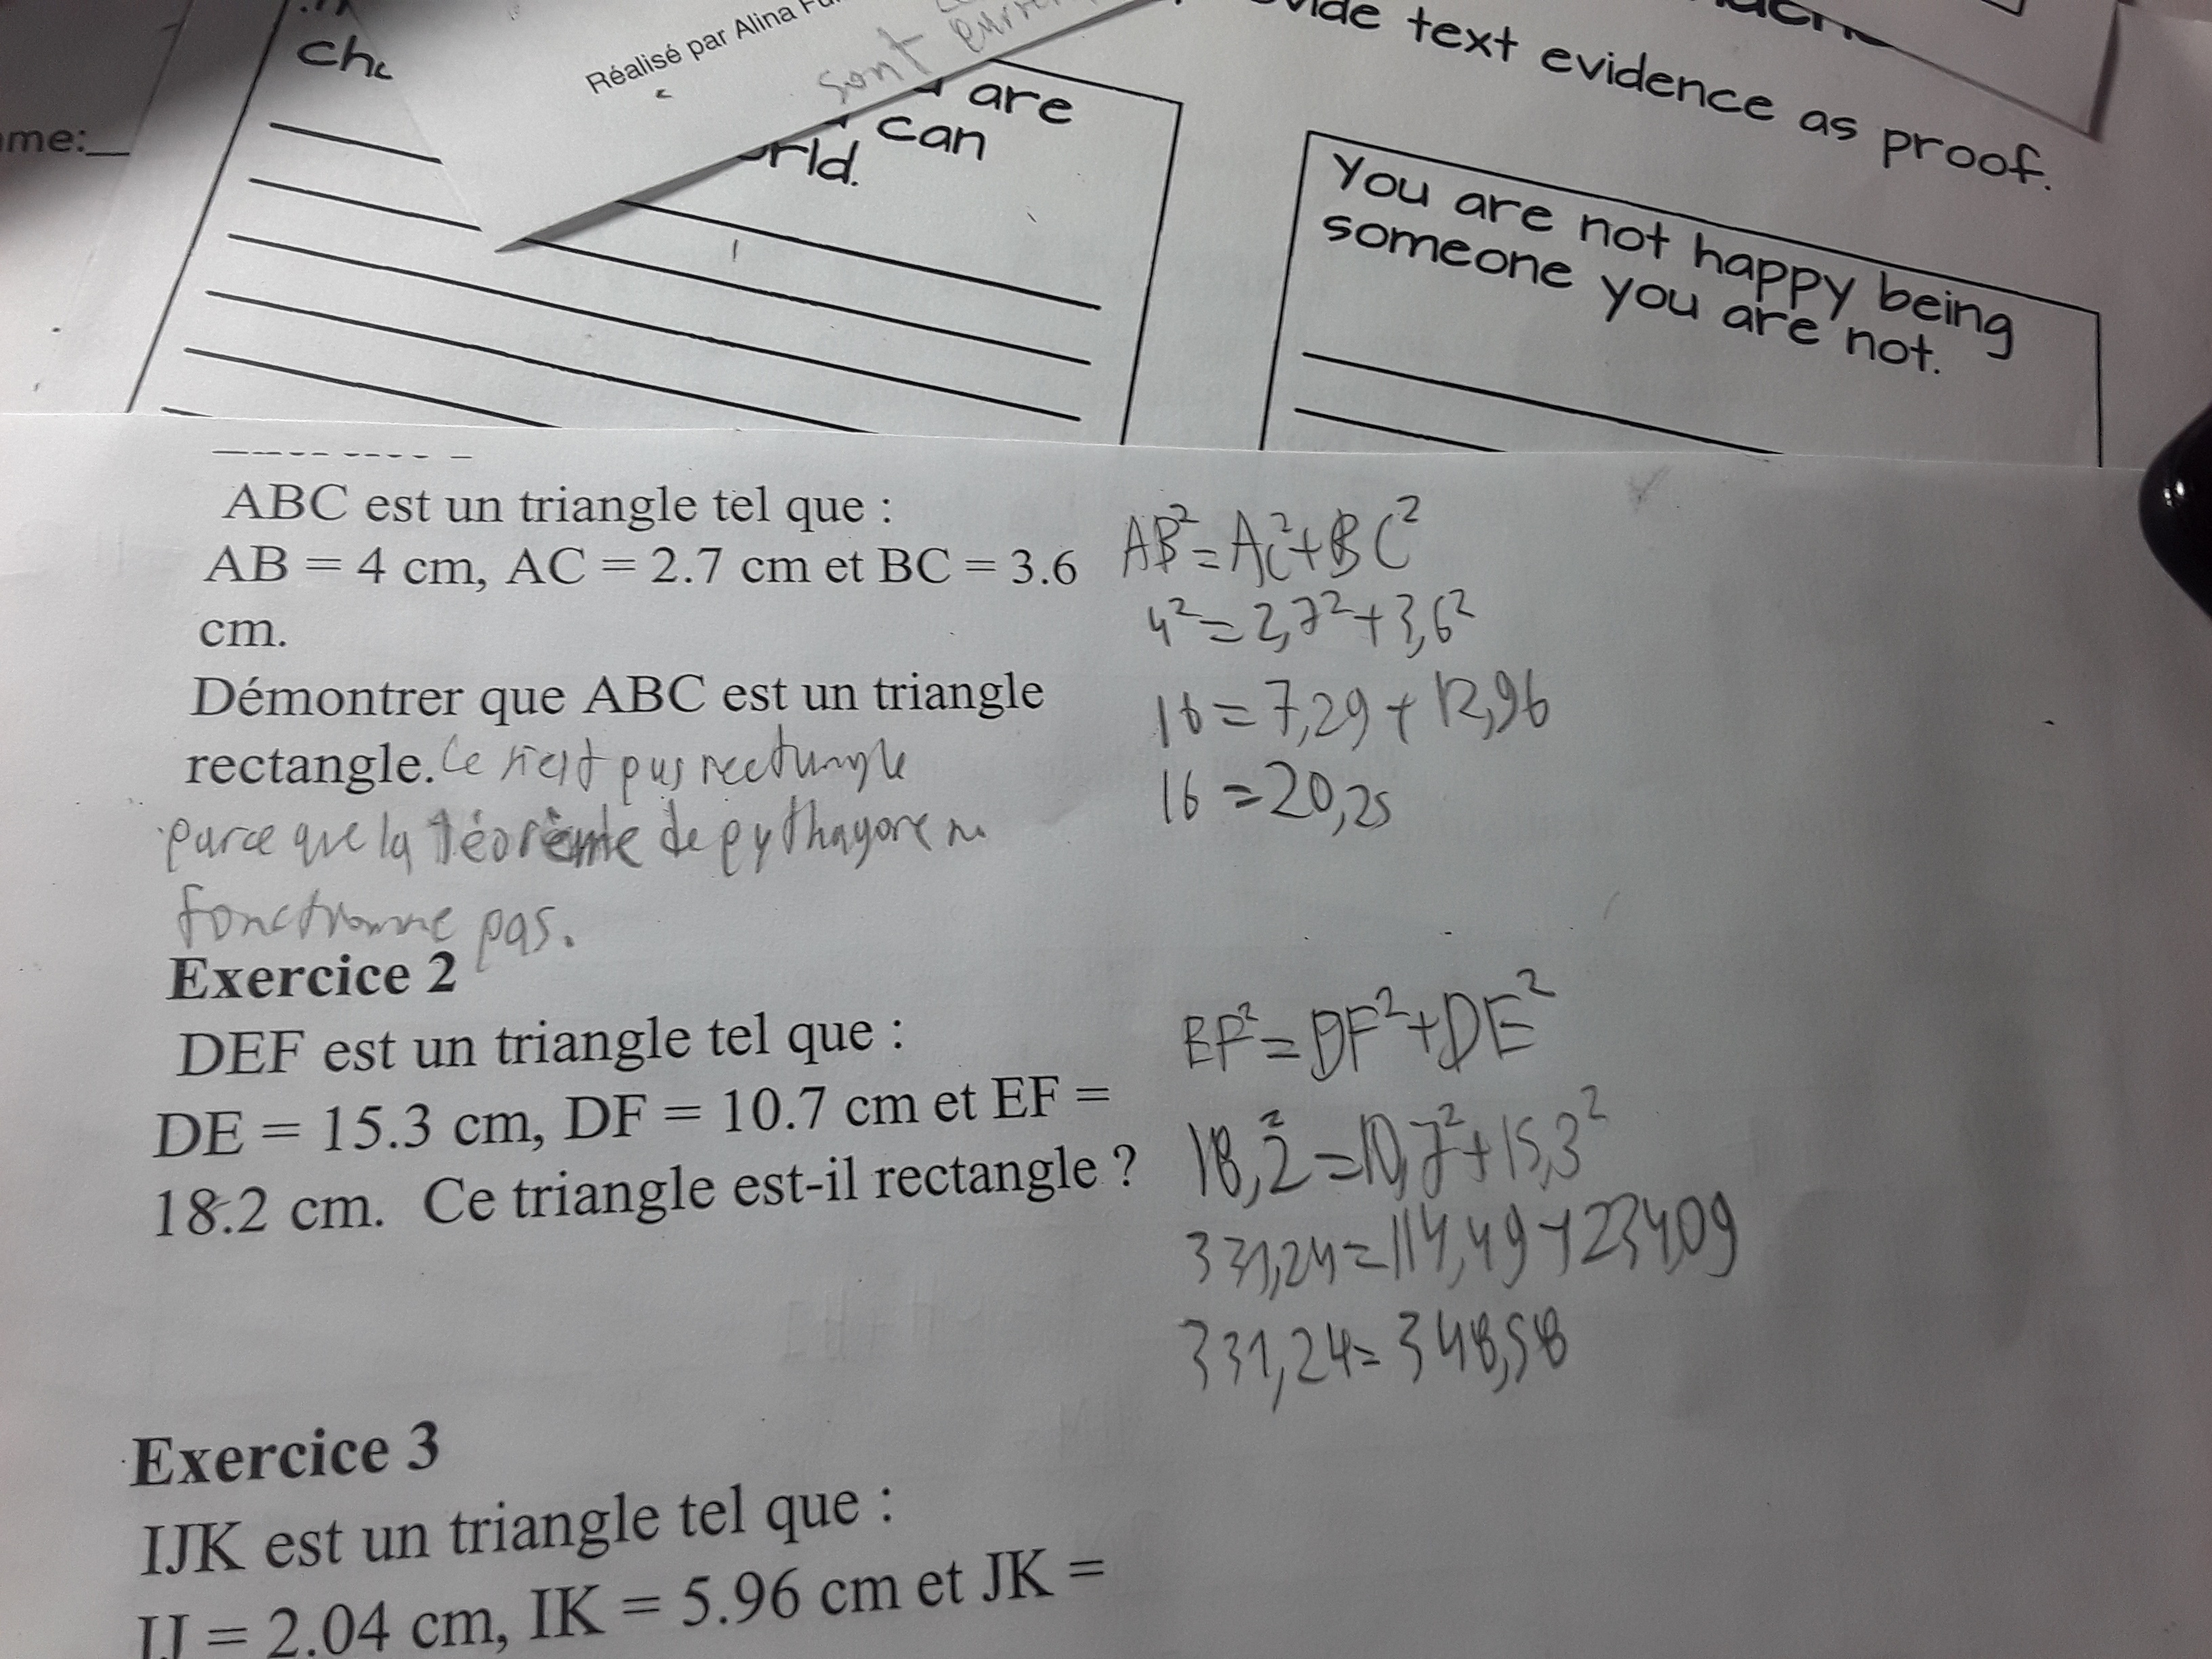 Réalisé par Alina
sont
are
can
rld.
me:
vide text evidence as proof.
You are not happy being
someone you are not.
ABC est un triangle tel que :
AB = 4 cm, AC = 2.7 cm et BC = 3.6
cm.
Démontrer que ABC est un triangle
rectangle. Ce n'est pas rectangle
parce que la téorème de pythagore ne
fonctionne pas.
AB²=AC²+BC²
4²=2,7²+3,6²
16=7,29+12,96
16=20,25
Exercice 2
DEF est un triangle tel que :
DE = 15.3 cm, DF = 10.7 cm et EF =
18.2 cm. Ce triangle est-il rectangle ?
EF²=DF²+DE²
18,2²=10,7²+15,3²
331,24=114,49+234,09
331,24=348,58
Exercice 3
IJK est un triangle tel que :
IJ = 2.04 cm, IK = 5.96 cm et JK =